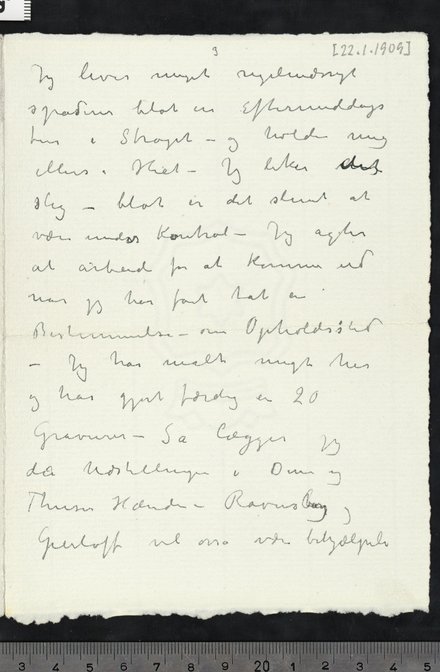 3
[22.1.1909]
Jeg lever meget regelmæssigt
spadserer blot en Eftermiddags
tur i Strøget – og holder mig
ellers i Hiet – Jeg liker det
slig – blot er det slemt at
være under Kontrol – Jeg agter
at arbeide for at komme ud
naar jeg har fåt tat en
Bestemmelse – om Opholdssted
– Jeg har malt meget her
og har gjort færdig en 20
Gravurer – Så lægger jeg
da Udstillingen i Deres og
Thiises Hænder – Ravensberg og
Gierløff vil osså være behjælpelig